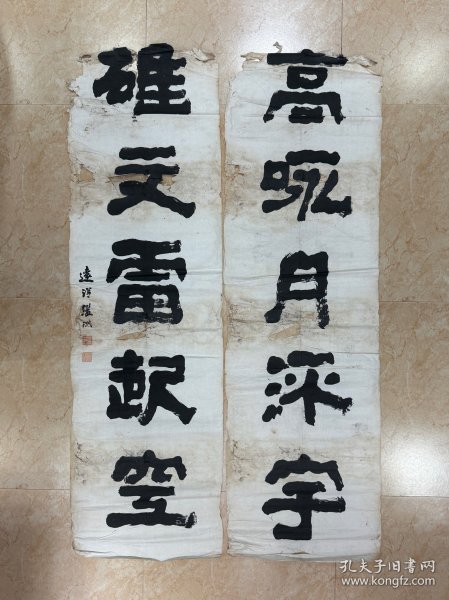 高咏月深宇
雄文雷起空
孔夫子旧书网
www.kongfz.com